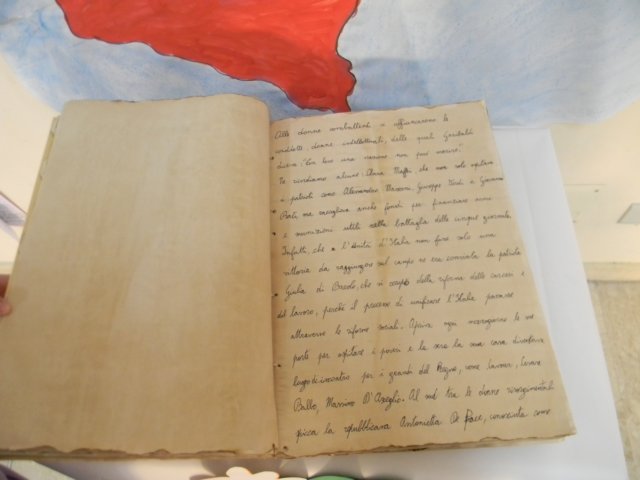 Alle donne combattenti si affiancarono le
cosiddette donne intellettuali, delle quali Garibaldi
diceva: "Con loro una nazione non può morire."
Ne ricordiamo alcune: Clara Maffei che non solo ospitava
i patrioti come Alessandro Manzoni, Giuseppe Verdi e Giovanni
Prati ma raccoglieva anche fondi per finanziare armi
e munizioni utili nella battaglia delle cinque giornate.
Infatti, che l'Unità d'Italia non fosse solo una
vittoria da raggiungere sul campo ne era convinta la patriota
Giulia di Barolo, che si occupò della riforma delle carceri e
del lavoro, perchè il processo di unificare l'Italia passasse
attraverso le riforme sociali. Apriva ogni mezzogiorno le sue
porte per ospitare i poveri e la sera la sua casa diventava
luogo di incontro per i grandi del Regno, come Cavour, Cesare
Balbo, Massimo D'Azeglio. Al sud tra le donne risorgimentali
spicca la repubblicana Antonietta De Pace, conosciuta come